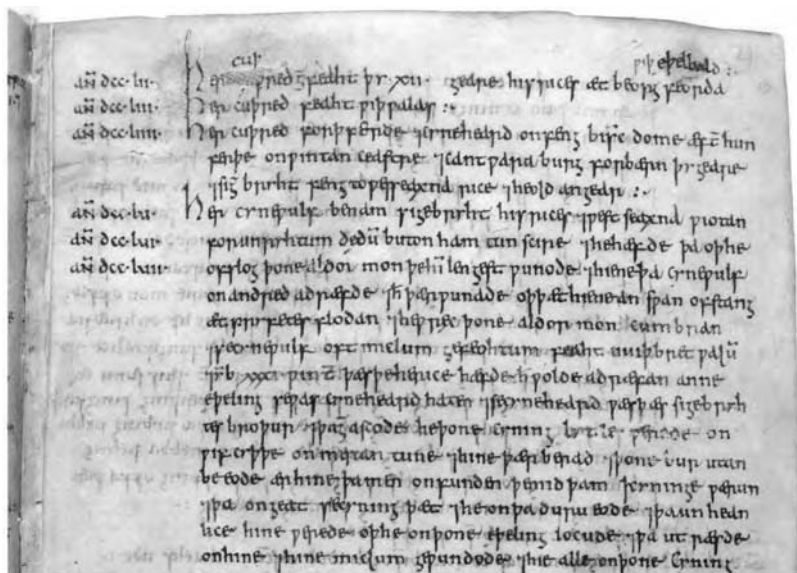 cuþ wiþ eþelbald :
añ dcc.lii. Her cuþred gefeaht þy .xii. geare his rices æt beorg feorda
añ dcc.liii. Her cuþred feaht wiþ walas :
añ dcc.liiii. Her cuþred forþferde ⁊ cyneheard onfeng biscdome æft̄ hun
ferþe on wintan ceastre ⁊ cantwara burg forbærn þy geare
⁊ sigebryht feng to wesseaxna rice ⁊ heold an gear :
añ dcc.lv. Her cynewulf benam sigebryht his rices ⁊ westseaxna wiotan
añ dcc.lvi. for unryhtum dedū buton ham tun scire ⁊ he hæfde þa oþ he
añ dcc.lvii. ofslog þone aldormon þe hī lengest wunode ⁊ hiene þa cynewulf
on andred adræfde ⁊ he þær wunade oþþæt hiene an swan ofstang
æt pryfetes flodan ⁊ he wręc þone aldormon cumbran
⁊ se cynewulf oft miclum gefeohtum feaht uuiþ bretwalū
⁊ ymb xxxi wint̄ þæs þe he rice hæfde he wolde adræfan anne
eþeling se was cyneheard haten ⁊ se cyneheard wæs þæs sigebryh
tes broþur ⁊ þa geascode he þone cyning lytle werode on
wifcyþþe on merantune ⁊ hine þær berad ⁊ þone bur utan
be eode ær hine þa men onfunden þe mid þam kyninge wærun
⁊ þa ongeat se cyning þæt ⁊ he on þa duru eode ⁊ þa unhean
lice hine werede oþ he on þone eþeling locude ⁊ þa ut ræsde
on hine ⁊ hine miclum gewundode ⁊ hie alle on þone cyning